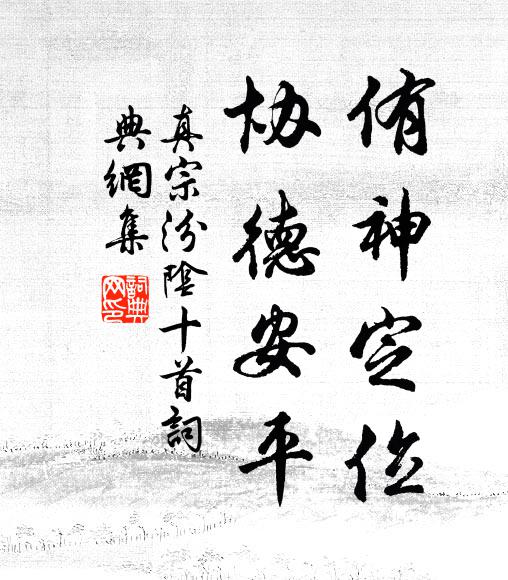 侑神定位
協德安平
真宗汾陰十首詞
典網集
詞典網印